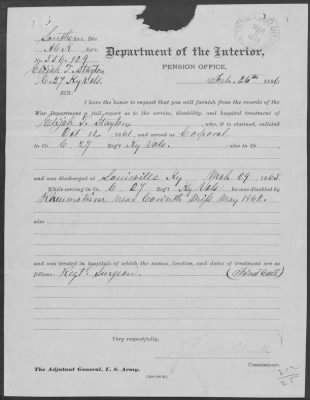 Southern Div.
No. 556,129
Elijah T. Stayton
C. 27 Ky Vols.
Department of the Interior,
PENSION OFFICE,
Feb. 24th, 1886.
SIR:
I have the honor to request that you will furnish from the records of the
War Department a full report as to the service, disability, and hospital treatment of
Elijah T. Stayton, who, it is claimed, enlisted
Oct 12, 1861, and served as Corporal
in Co. C. 27 Reg't Ky Vols., also in Co.
and was discharged at Louisville Ky Mch 29, 1865
While serving in Co. C. 27 Reg't Ky Vols, he was disabled by
Rheumatism near Corinth Miss May 1862.
also
and was treated in hospitals of which the names, location, and dates of treatment are as
follows: Regtl Surgeon. (First Call)
Very respectfully,
Commissioner.
The Adjutant General, U. S. Army.